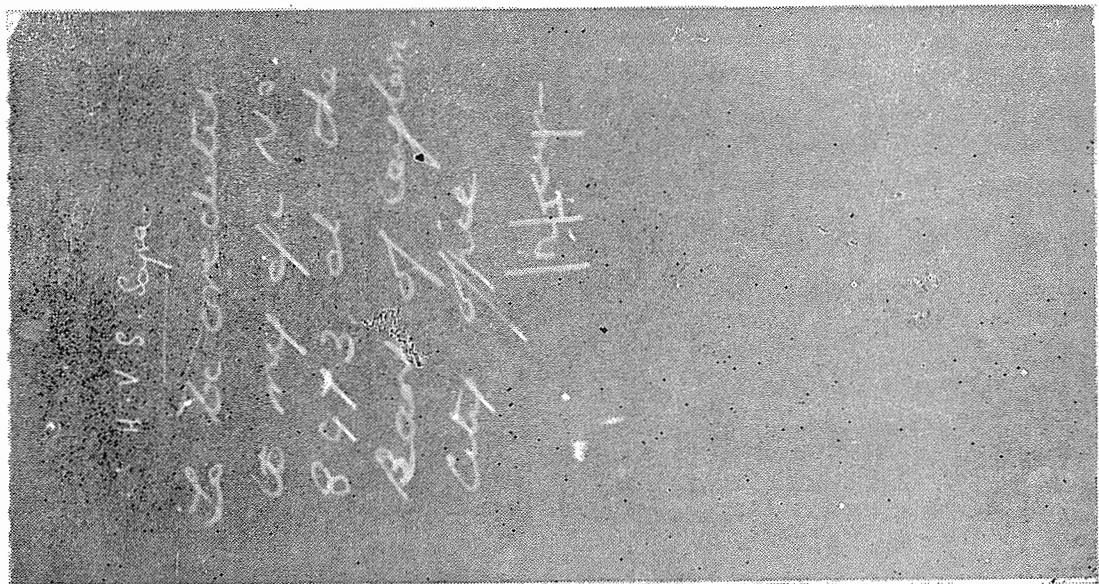 H. V. S. Soya
To be credited
to my a/c No
8973 at the
Bank of Ceylon
City office